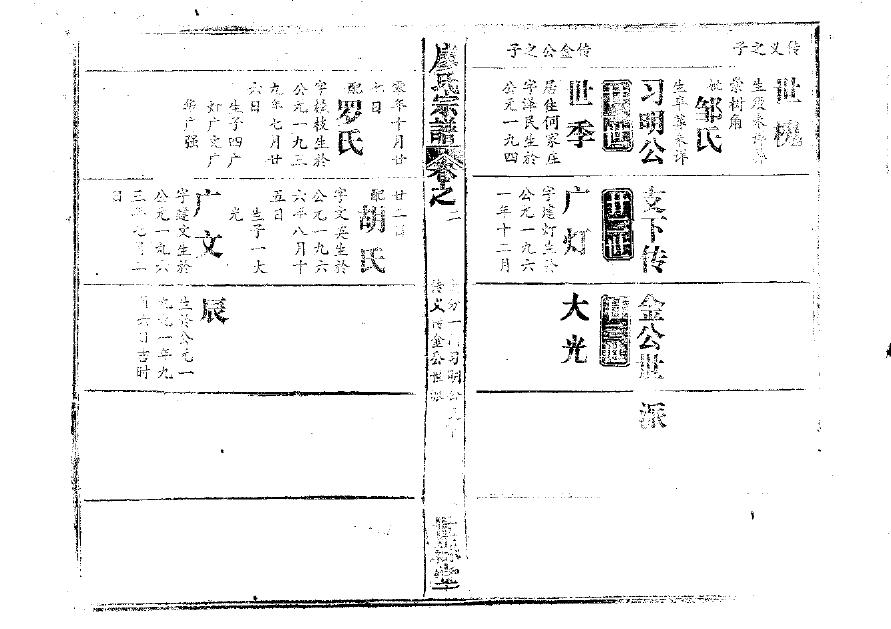 传义之子
世槐
生殁未详葬
棠树角
妣邹氏
生卒葬未详
习明公支下传金公世派
传金公之子
世季
居住何家庄
字泽民生於
公元一九四
廿二世
广灯
字建灯生於
公元一九六
一年十二月
廿三世
大光
廖氏宗譜卷之二
分一门习明公支下
传义传金公世派
堂
年十月廿
七日
配罗氏
字枝枝生於
公元一九三
九年七月廿
六日
生子四广
灯广文广
华广强
廿二日
配胡氏
字文英生於
公元一九六
六年八月十
五日
生子一大
光
广文
字建文生於
公元一九六
三年七月二
日
辰
生於公元一
九九一年九
月六日吉时